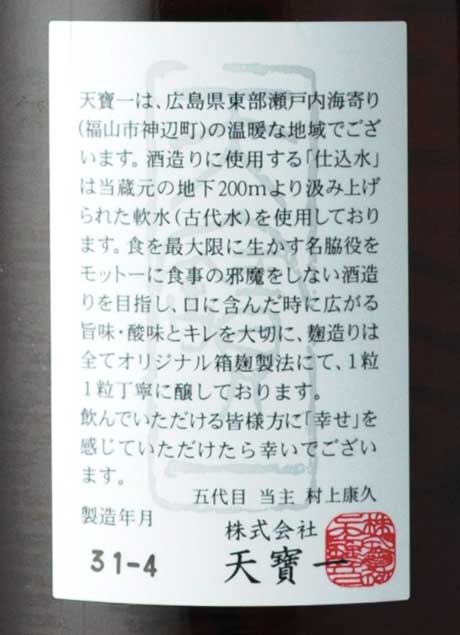 天寶一は、広島県東部瀬戸内海寄り
(福山市神辺町)の温暖な地域でござ
います。酒造りに使用する「仕込水」
は当蔵元の地下200mより汲み上げ
られた軟水(古代水)を使用しており
ます。食を最大限に生かす名脇役を
モットーに食事の邪魔をしない酒造
りを目指し、口に含んだ時に広がる
旨味・酸味とキレを大切に、麹造りは
全てオリジナル箱麹製法にて、1粒
1粒丁寧に醸しております。
飲んでいただける皆様方に「幸せ」を
感じていただけたら幸いでござい
ます。
五代目 当主 村上康久
製造年月
31-4
株式会社
天寶一